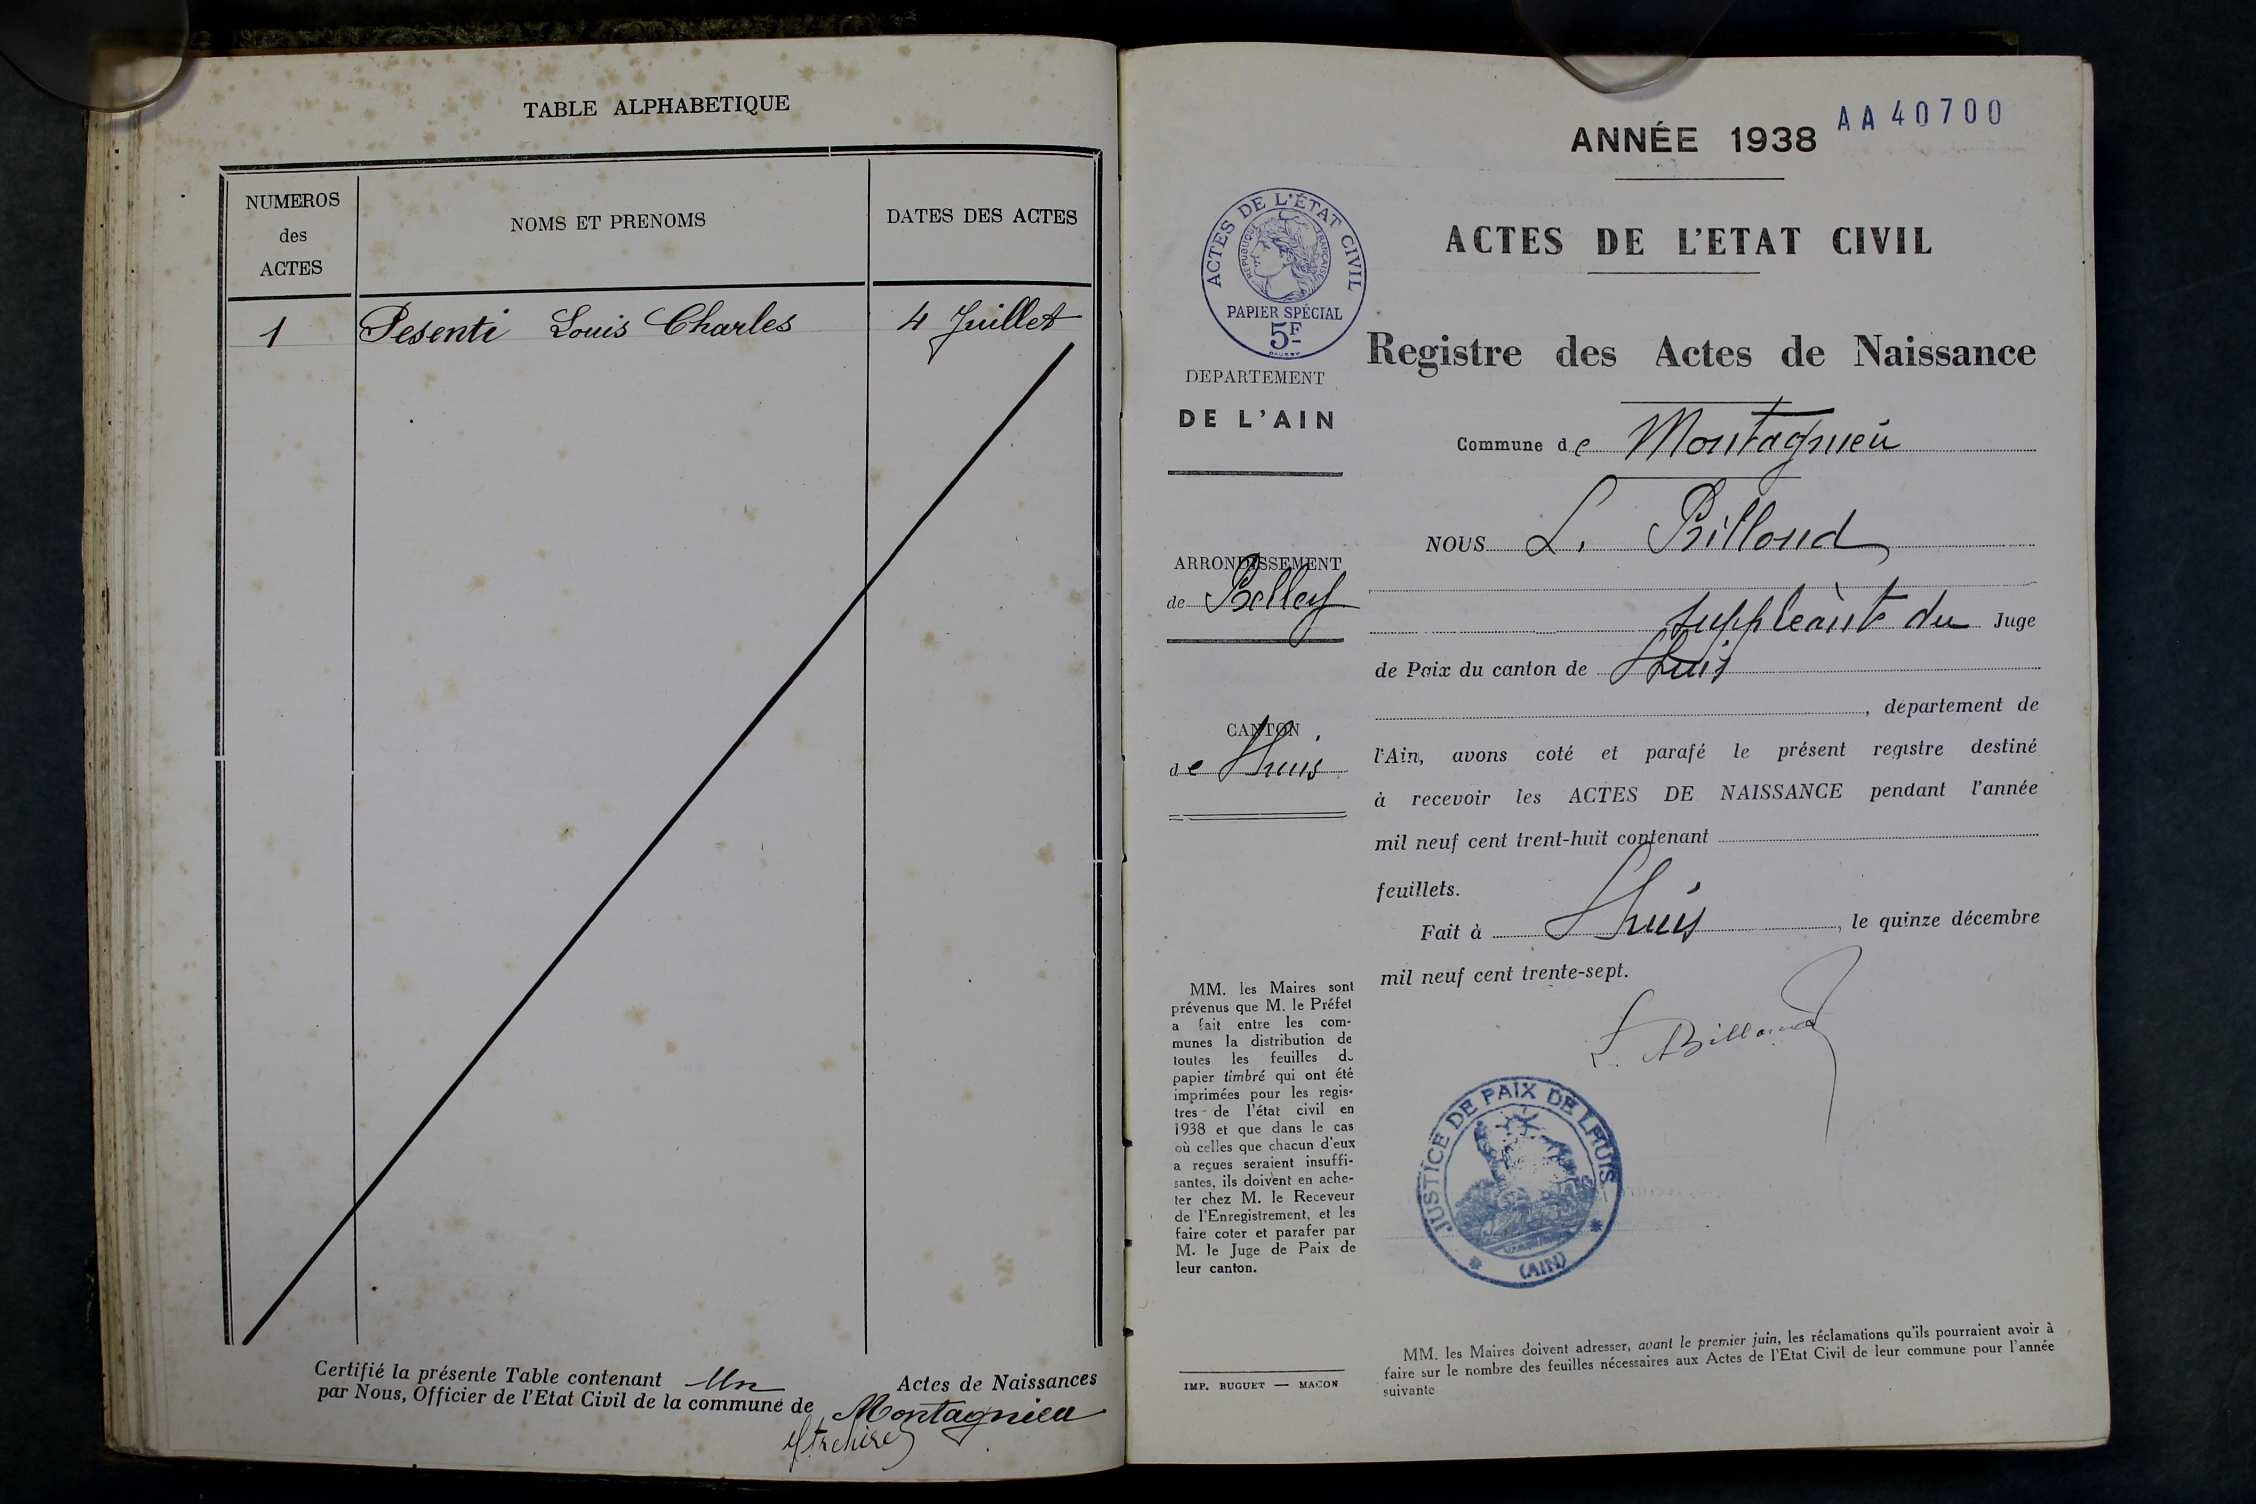 TABLE ALPHABETIQUE
NUMEROS
des
ACTES
NOMS ET PRENOMS
DATES DES ACTES
1 Pesenti Louis Charles 4 Juillet
Certifié la présente Table contenant Un Actes de Naissances
par Nous, Officier de l'Etat Civil de la commune de Montagnieu
AA 40700
ANNÉE 1938
ACTES DE L'ETAT CIVIL
ACTES DE L'ÉTAT CIVIL
RÉPUBLIQUE FRANÇAISE
PAPIER SPÉCIAL
5F
Registre des Actes de Naissance
DEPARTEMENT
DE L'AIN
Commune de Montagnieu
NOUS L. Billoud
ARRONDISSEMENT
de Belley
suppléant du Juge
de Paix du canton de Lhuis
, département de
CANTON
de Lhuis
l'Ain, avons coté et parafé le présent registre destiné
à recevoir les ACTES DE NAISSANCE pendant l'année
mil neuf cent trent-huit contenant
feuillets.
Fait à Lhuis, le quinze décembre
mil neuf cent trente-sept.
L. Billoud
JUSTICE DE PAIX DE LHUIS
(AIN)
MM. les Maires sont
prévenus que M. le Préfet
a fait entre les com-
munes la distribution de
toutes les feuilles de
papier timbré qui ont été
imprimées pour les regis-
tres de l'état civil en
1938 et que dans le cas
où celles que chacun d'eux
a reçues seraient insuffi-
santes, ils doivent en ache-
ter chez M. le Receveur
de l'Enregistrement, et les
faire coter et parafer par
M. le Juge de Paix de
leur canton.
IMP. BUGUET — MACON
MM. les Maires doivent adresser, avant le premier juin, les réclamations qu'ils pourraient avoir à
faire sur le nombre des feuilles nécessaires aux Actes de l'Etat Civil de leur commune pour l'année
suivante